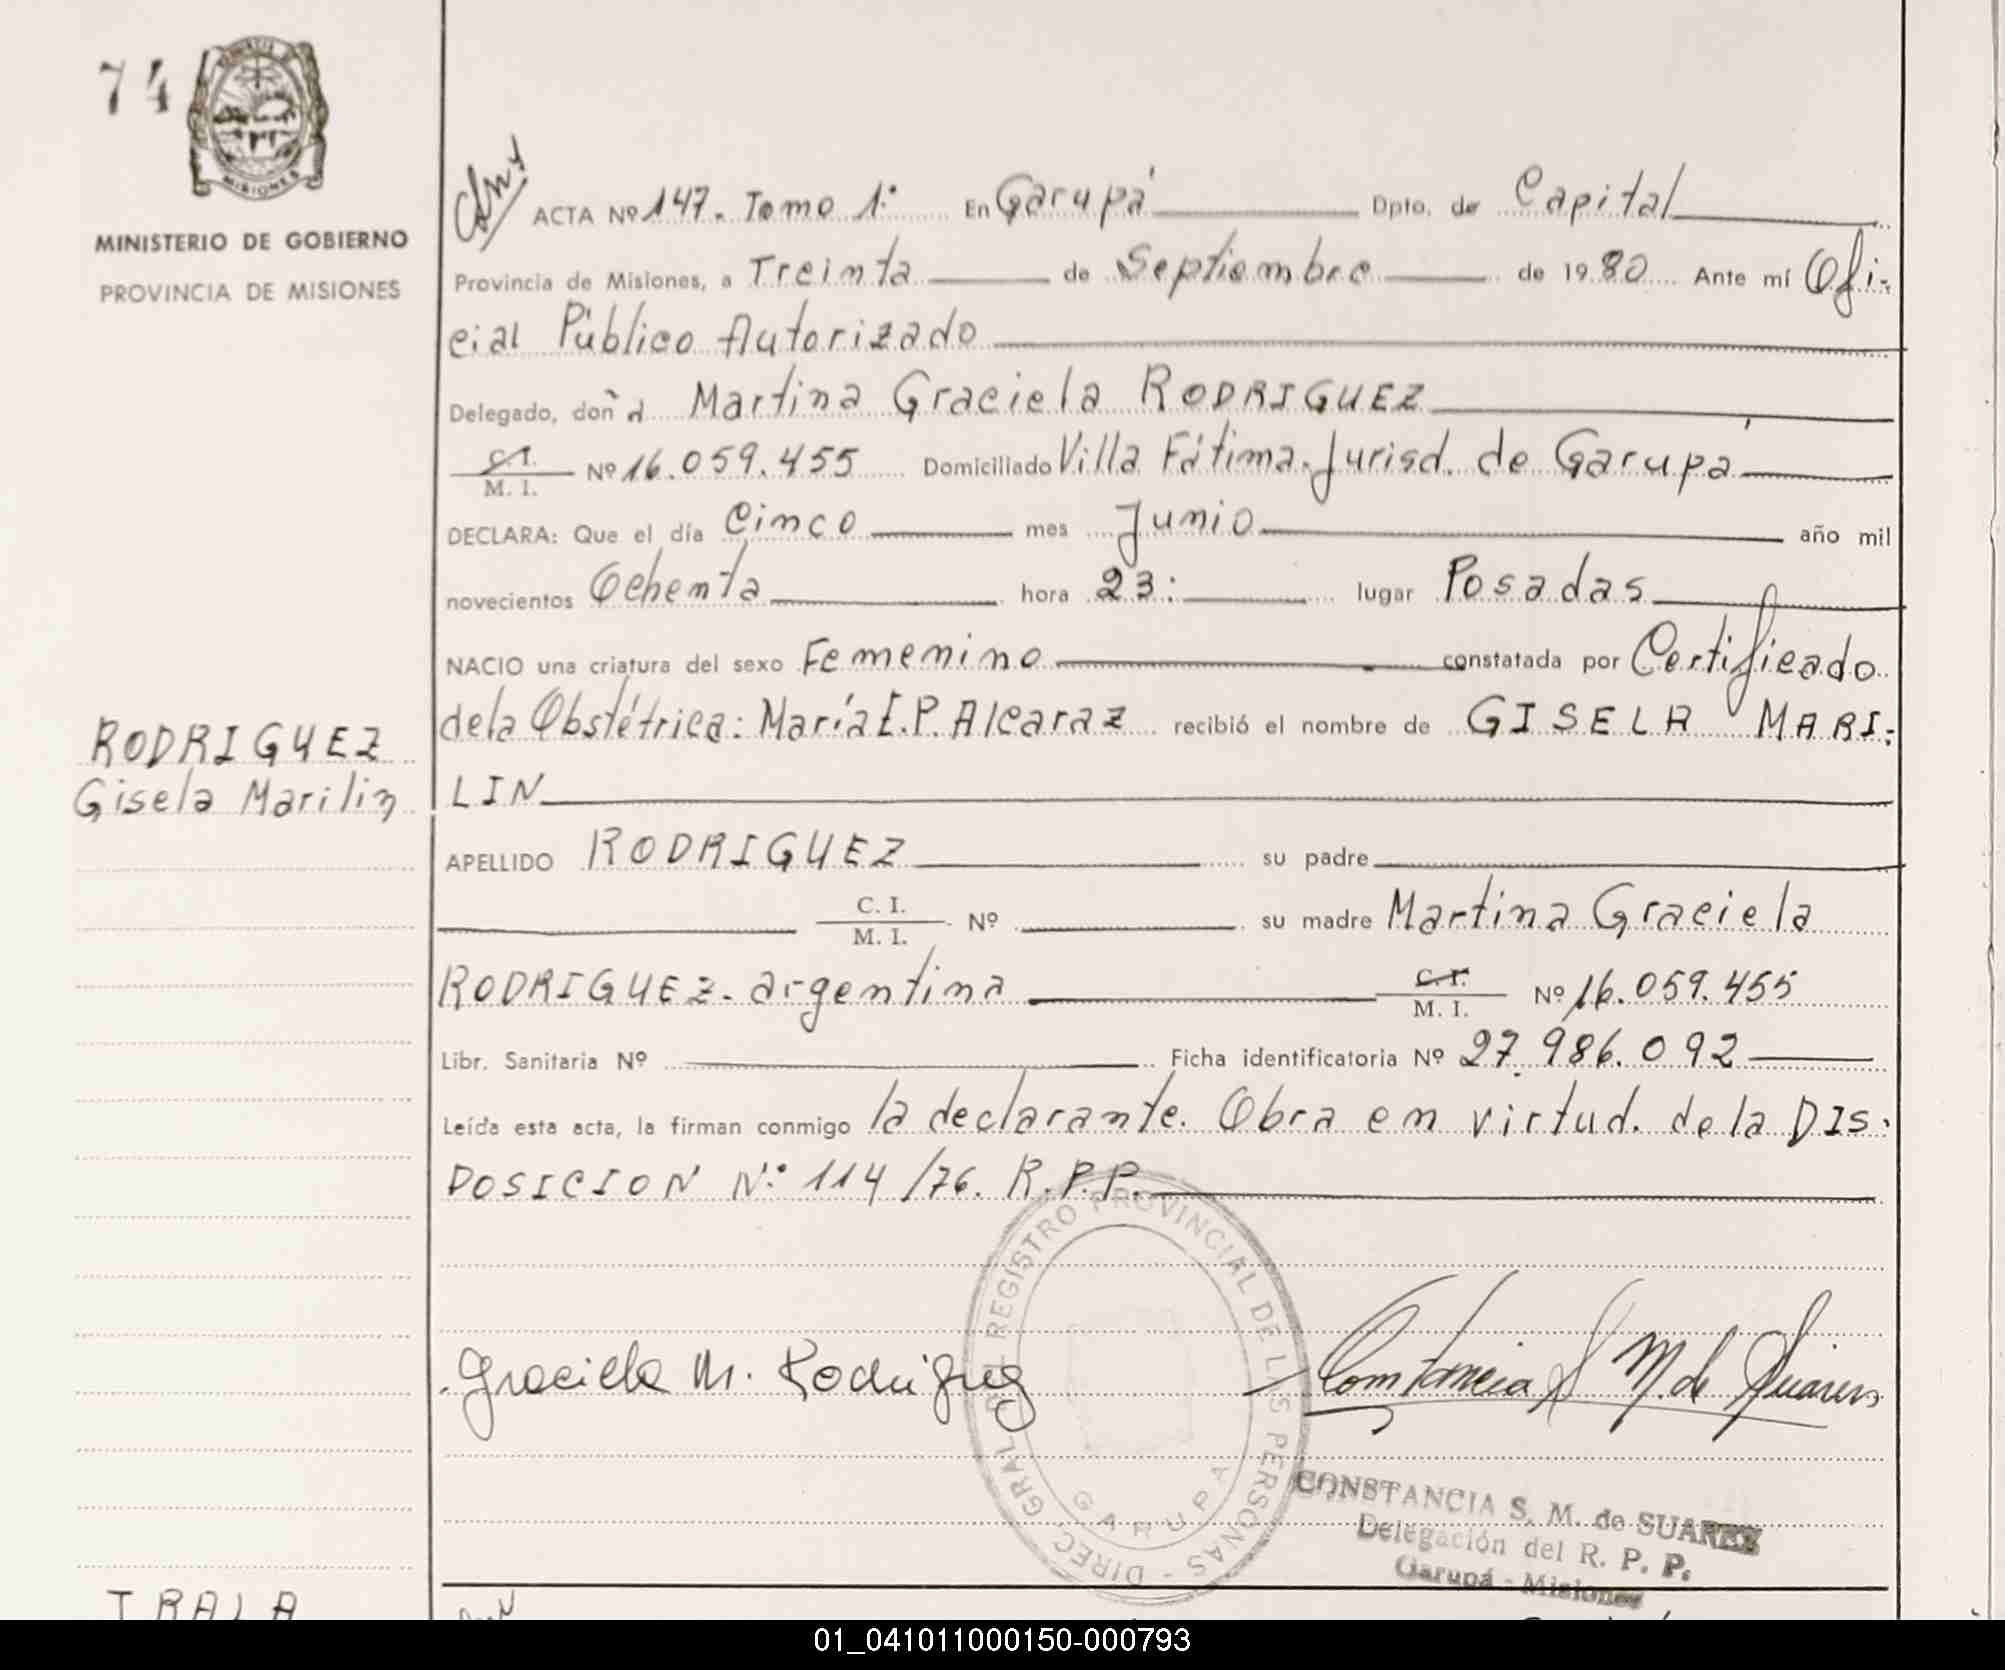 74
MISIONES
MINISTERIO DE GOBIERNO
PROVINCIA DE MISIONES
ACTA Nº 147. Tomo 1º En Garupá Dpto. de Capital
Provincia de Misiones, a Treinta de Septiembre de 1980 Ante mí Ofi-
cial Público Autorizado
Delegado, doña Martina Graciela RODRIGUEZ
C. I.
M. I. Nº 16.059.455 Domiciliado Villa Fátima. Jurisd. de Garupá
DECLARA: Que el día Cinco mes Junio año mil
novecientos Ochenta hora 23: lugar Posadas
NACIO una criatura del sexo Femenino constatada por Certificado
RODRIGUEZ
Gisela Marilin
de la Obstétrica: María E.P. Alcaraz recibió el nombre de GISELA MARI-
LIN
APELLIDO RODRIGUEZ su padre
C. I.
M. I. Nº su madre Martina Graciela
RODRIGUEZ - argentina C. I.
M. I. Nº 16.059.455
Libr. Sanitaria Nº Ficha identificatoria Nº 27.986.092
Leída esta acta, la firman conmigo la declarante. Obra en virtud. de la DIS-
POSICION Nº 114/76. R.P.P.
DIREC. GRAL. DEL REGISTRO PROVINCIAL DE LAS PERSONAS -
GARUPA
Graciela M. Rodriguez
Constancia S M. de Suarez
CONSTANCIA S. M. de SUAREZ
Delegación del R. P. P.
Garupá - Misiones
IRALA
01_041011000150-000793